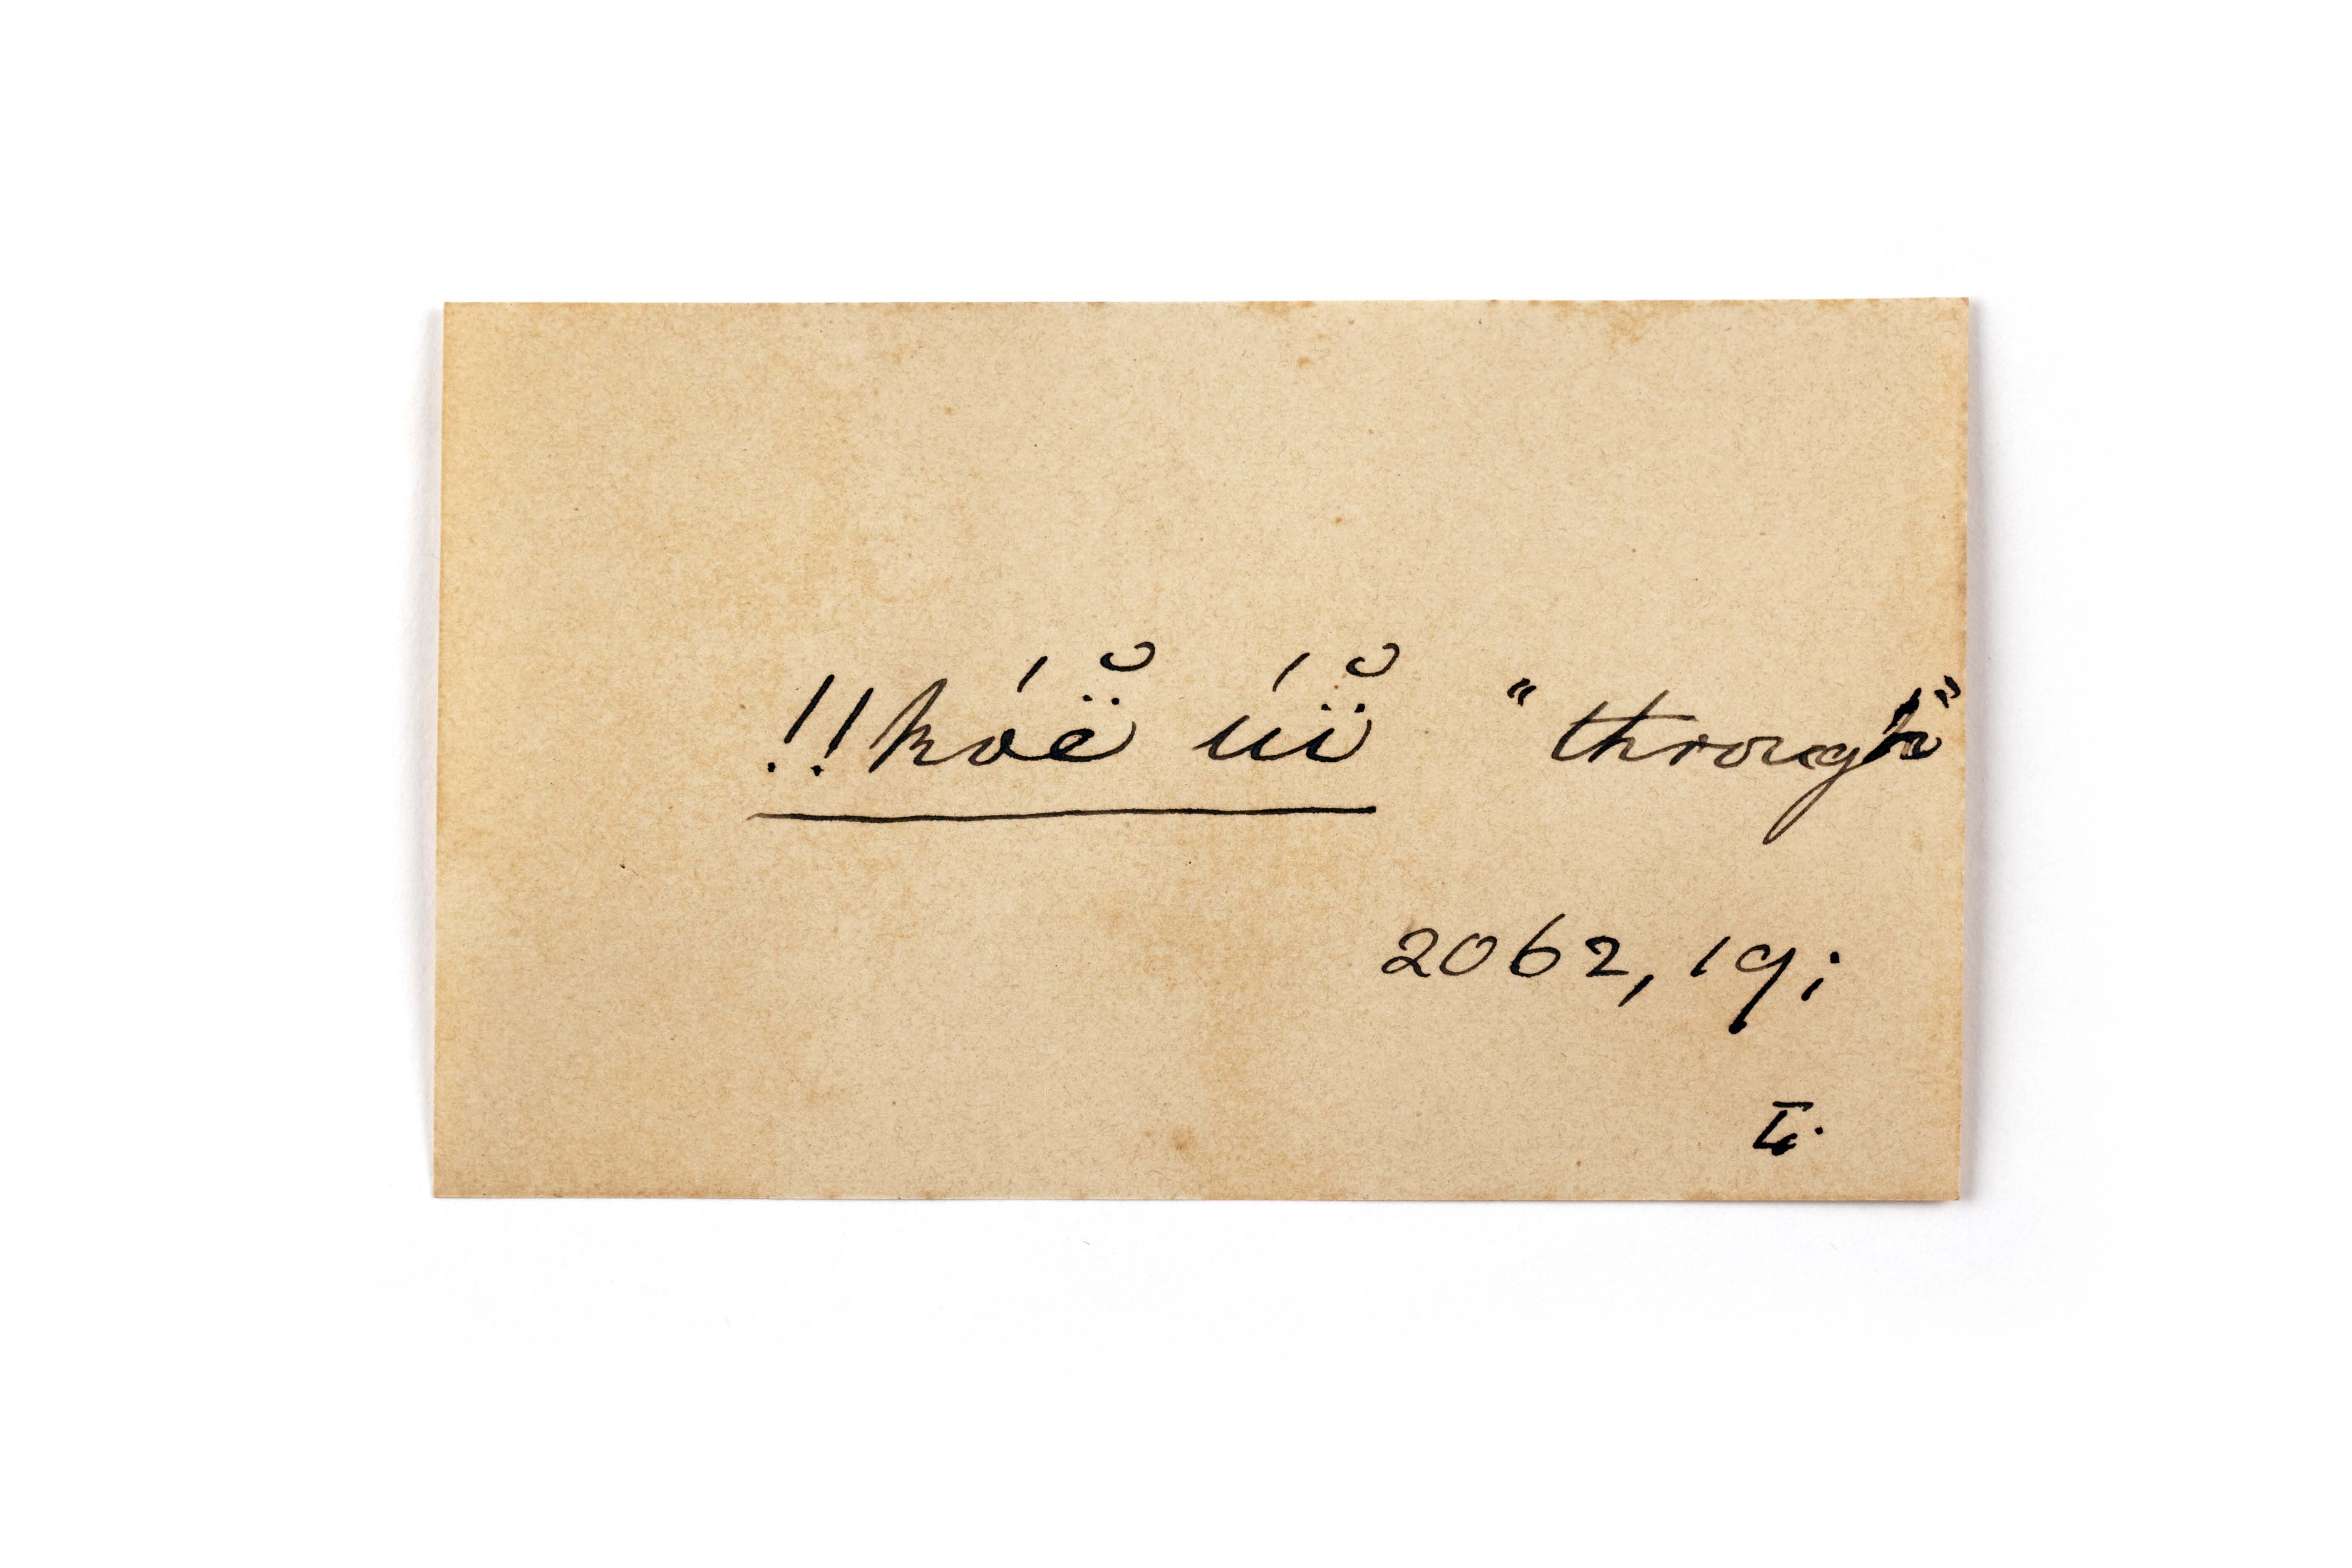 !!kóë̆ úï̆ "through"
2062, 19;